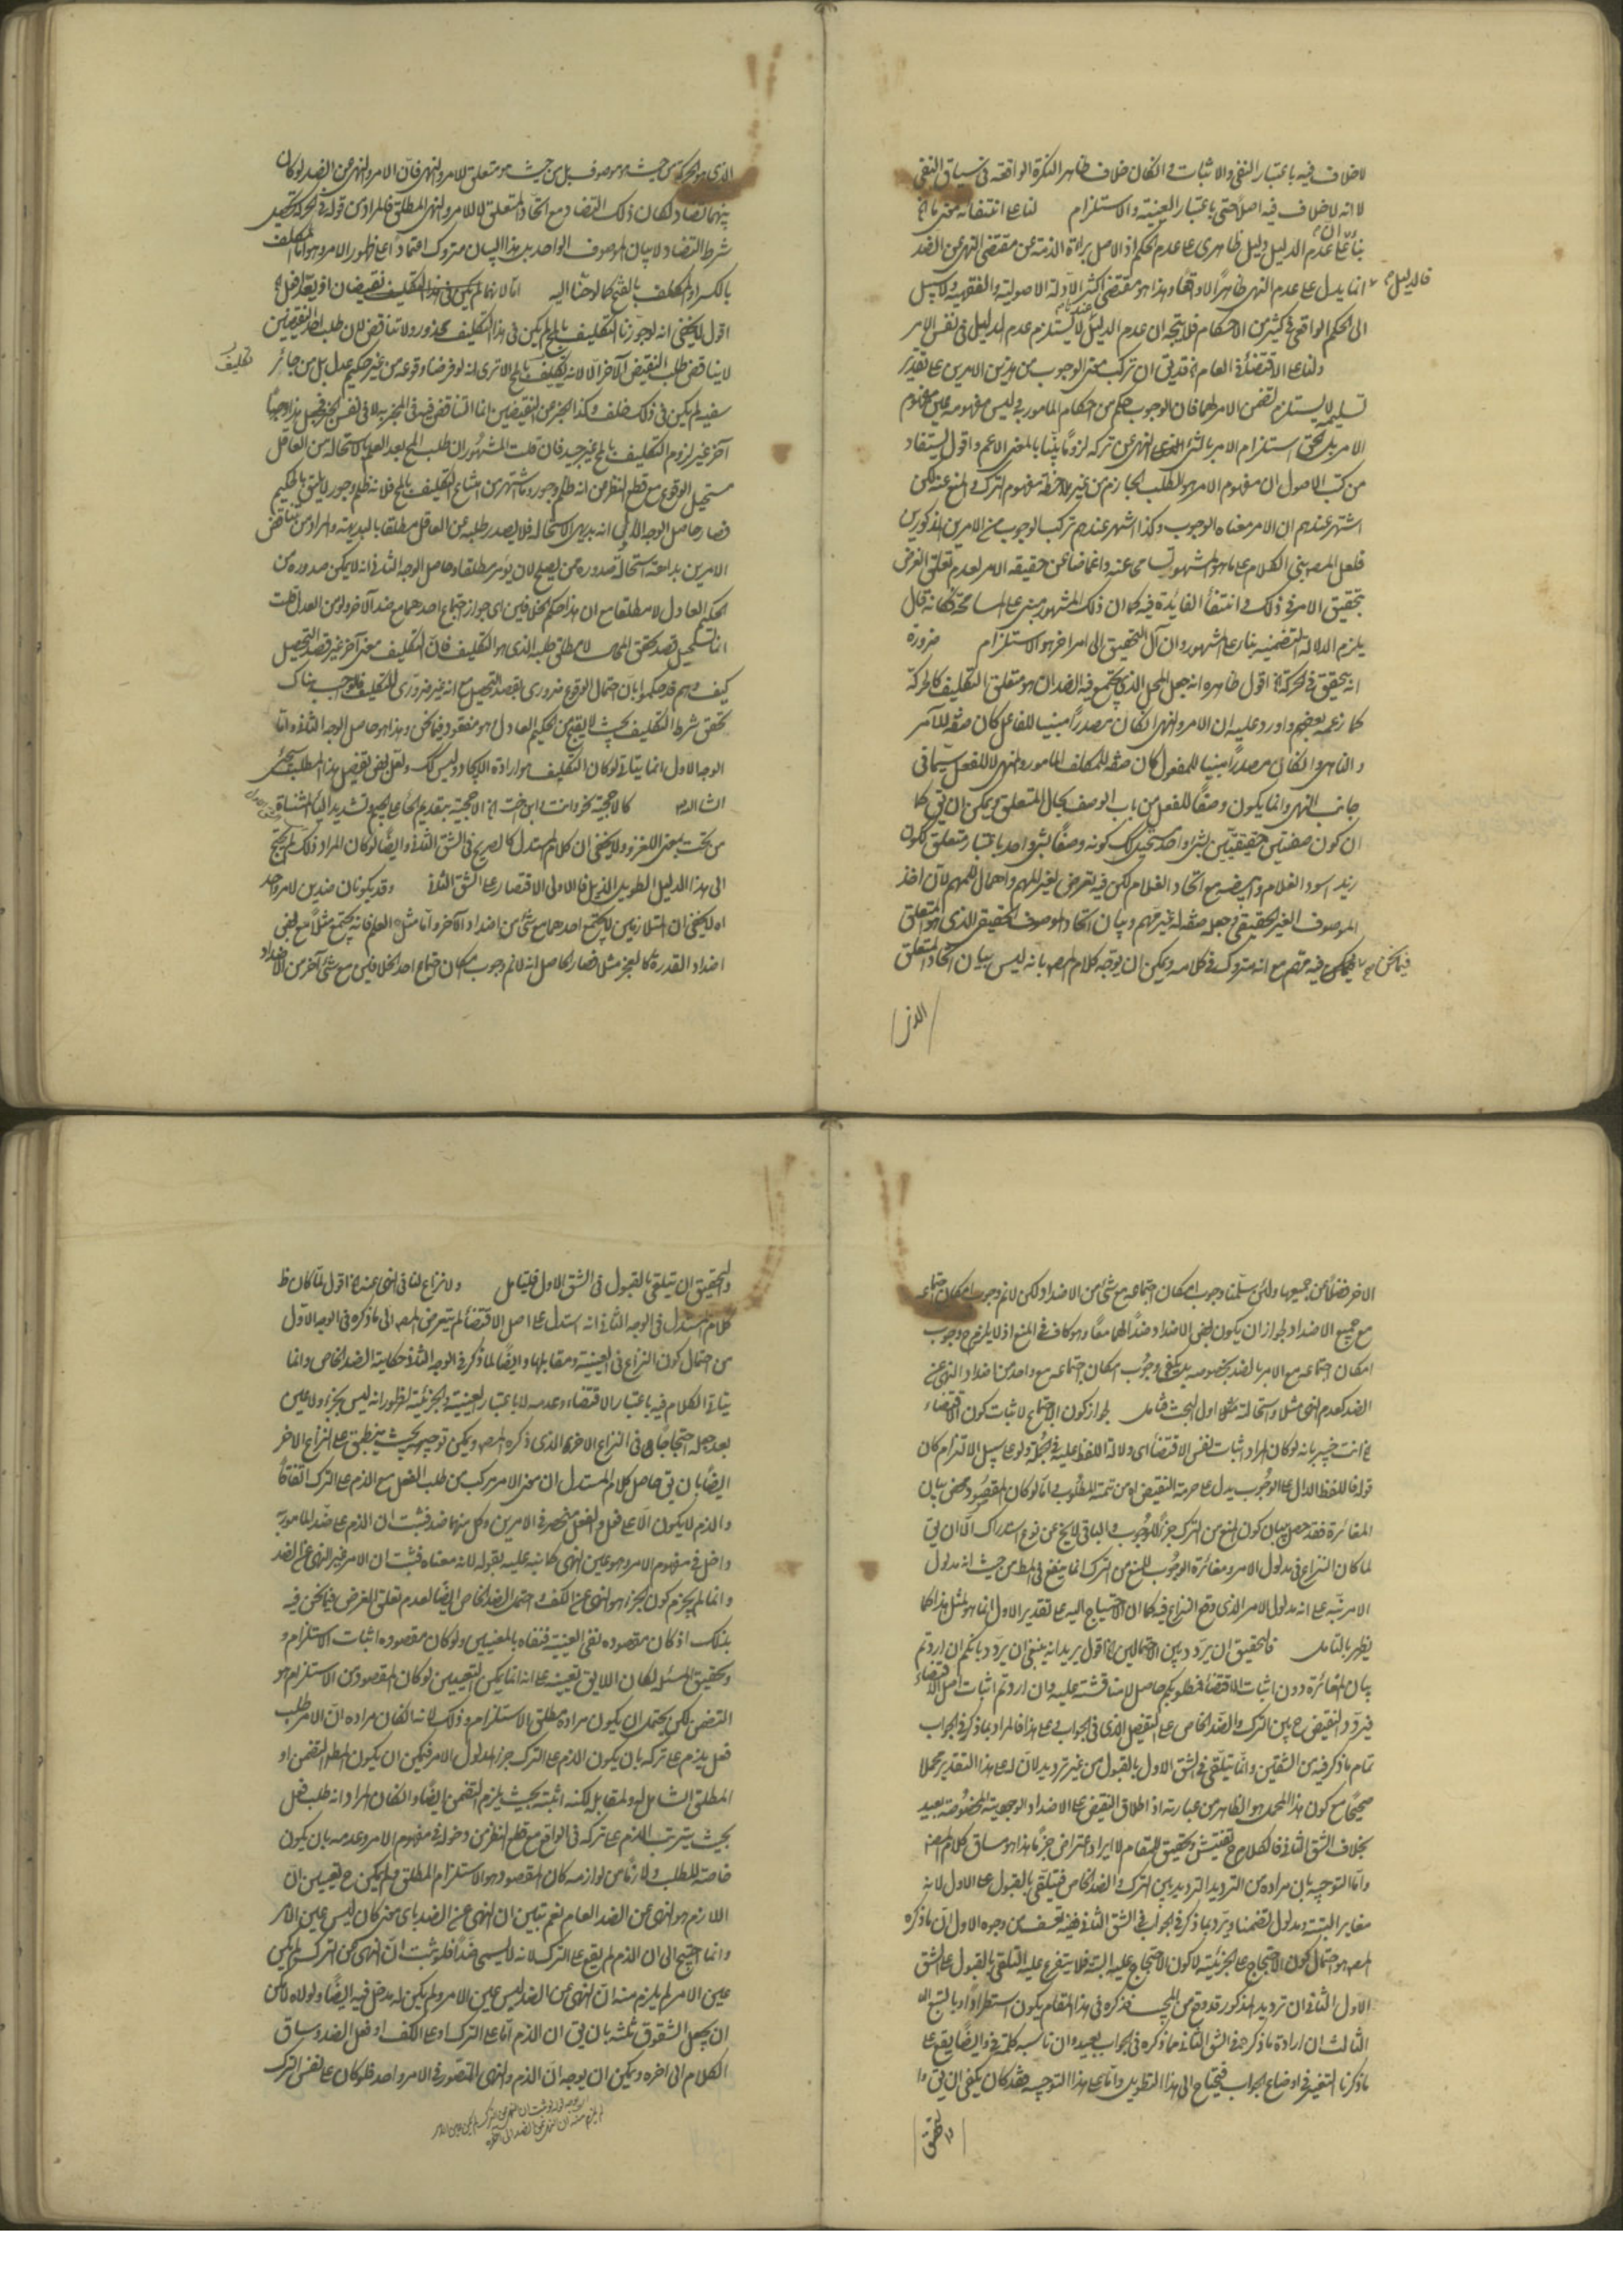 لا خلاف فيه باعتبار النفي والاثبات وان كان خلاف ظاهر النكرة الواقعة في سياق النفي
لا انه لا خلاف فيه اصلا حتى باعتبار العينية والاستلزام لنا على انتفائه
بناء على ان عدم الدليل دليل ظاهري على عدم الحكم اذ الاصل براءة الذمة عن مقتضى النهي عن الضد
فالدليل انما يدل على عدم النهي ظاهرا لا واقعا وهذا هو مقتضى اكثر الادلة الاصولية والفقهية ولا سبيل
الى الحكم الواقعي في كثير من الاحكام فلا يتجه ان عدم الدليل لا يستلزم عدم الدليل في نفس الامر
ولنا على الاقتضاء في العام قد يقال ان تركب معنى الوجوب من هذين الامرين على تقدير
تسليمه لا يستلزم تضمن الامر لهما فان الوجوب حكم من احكام المامور به وليس مفهومه عين مفهوم
الامر بل تحقق استلزام الامر بالشيء النهي عن تركه لزوما بينا بالمعنى الاعم واقول يستفاد
من كتب الاصول ان مفهوم الامر هو الطلب الجازم من غير ملاحظة مفهوم الترك والمنع عنه لكن
اشتهر عندهم ان الامر معناه الوجوب وكذا اشتهر عندهم تركب الوجوب من الامرين المذكورين
فلعل المصـ بنى الكلام على ما هو المشهور تسامحا عنه واغماضا عن حقيقة الامر لعدم تعلق الغرض
بتحقيق الامر في ذلك وانتفاء الفايدة فيه كما ان ذلك المشهور مبني على المسامحة فكانه قال
يلزم الدلالة التضمنية بناء على المشهور وان آل التحقيق الى امر اخر هو الاستلزام ضرورة
انه يتحقق في الحركة اقول ظاهره انه جعل المحل الذي يجتمع فيه الضدان هو متعلق التكليف كالحركة
كما زعمه بعضهم واورد عليه ان الامر والنهي ان كان مصدرا مبنيا للفاعل كان صفة للآمر
والناهي وان كان مصدرا مبنيا للمفعول كان صفة للمكلف المامور والمنهي لا للفعل سيما في
جانب النهي وانما يكون وصفا للفعل من باب الوصف بحال المتعلق ويمكن ان يقال كما
ان كون صفتين حقيقيتين لشيء واحد مستحيل كذلك كونه وصفا لشيء واحد باعتبار متعلق ككون
زيد اسود الغلام وابيضه مع اتحاد الغلام لكن فيه تعرض لغير المهم واهمال للمهم لان اخذ
الموصوف الغير الحقيقي وجعله صفة له غير مهم وبيان اتحاد الموصوف الحقيقي الذي هو المتعلق
فيما نحن فيه مهم مع انه متروك في كلامه ويمكن ان يوجه كلام المصـ بانه ليس بيان اتحاد المتعلق
الذي
الذي هو الحركة من حيث هو موصوف بل من حيث هو متعلق للامر والنهي فان الامر والنهي عن الضد لو كان
بينهما تضاد لكان ذلك التضاد مع اتحاد المتعلق لا للامر والنهي المطلق فالمراد من قوله في الحركة تحصيل
شرط التضاد لا بيان الموصوف الواحد بل هذا البيان متروك اعتمادا على ظهور الامر وهو اما المكلف
بالكسر او المكلف بالفتح كما لوحنا اليه اما لانهما
اقول لا يخفى انه لو جوزنا التكليف بالمحـ لم يكن في هذا التكليف محذور ولا تناقض لان طلب احد النقيضين
لا يناقض طلب النقيض الآخر الا لانه تكليف بالمحـ الا ترى انه لو فرضنا وقوعه من غير حكيم عدل بل من جائر
تكليف
سفيه لم يكن في ذلك خلف وكذا المخبر عن النقيضين انما التناقض فيه في المخبر به لا في نفس الخبر فجعل هذا وجها
آخر غير لزوم التكليف بالمحـ غير جيد فان قلت المشهور ان طلب المحـ بعد العلم بالاستحالة من العاقل
مستحيل الوقوع مع قطع النظر من انه ظلم وجور وما اشتهر من امتناع التكليف بالمحـ فلانه ظلم وجور لا يليق بالحكيم
فصار حاصل الوجه الاول انه بديهي الاستحالة فلا يصدر طلبه عن العاقل مطلقا بالبديهة والمراد من تناقض
الامرين بداهة استحالة صدوره عمن يصلح لان يؤمر مطلقا وحاصل الوجه الثاني انه لا يمكن صدوره من
الحكيم العادل لا مطلقا مع ان هذا حكم الخلافين اي جواز اجتماع احدهما مع ضد الآخر ولو من العدل قلت
انما يستحيل قصد تحقق المحـ لا مطلق طلبه الذي هو التكليف فان التكليف معنى آخر غير قصد التحصيل
كيف وهم قد حكموا بان احتمال الوقوع ضروري لقصد التحصيل مع انه غير ضروري للتكليف
تحقق شرط التكليف بحيث لا يقبح من الحكيم العادل هو مفقود فيما نحن وهذا هو حاصل الوجه الثاني واما
الوجه الاول انما يتاتى لو كان التكليف هو ارادة الايجاد وليس كذلك ولعل بعض تفصيل هذا المطلب سيجيء
انشا الله كالاحجية
من تحت بمعنى اللغز ولا يخفى ان كلام المستدل كالصريح في الشق الثاني وايضا لو كان المراد ذلك لم يحتج
الى هذا الدليل الطويل الذيل فالاولى الاقتصار على الشق الثاني وقد يكونان ضدين لامر واحد
اه لا يخفى ان المتلازمين لا يجتمع احدهما مع شيء من اضداد الآخر واما مثل العلم فانه يجتمع مثلا مع بعض
اضداد القدرة كالعجز مثلا فصار الحاصل انه لانم وجوب امكان اجتماع احد الخلافين مع شيء آخر من الاضداد
الاخر فضلا عن جميعها ولئن سلمنا وجوب امكان اجتماعه مع شيء من الاضداد لكن لانم وجوب امكان اجتماعه
مع جميع الاضداد لجواز ان يكون بعض الاضداد ضدا لهما معا وهو كاف في المنع اذ لا يلزم ح وجوب
امكان اجتماعه مع الامر بالضد بخصوصه بل يكفي وجوب امكان اجتماعه مع واحد من اضداد النهي عن
الضد كعدم النهي مثلا واستحالة مثلا اول البحث فتامل لجواز كون الاحتجاج لاثبات كون الاقتضاء
اه انت خبير بانه لو كان المراد اثبات نفس الاقتضاء اي دلالة اللفظ عليه في الجملة ولو على سبيل الالتزام كان
قوله فاللفظ الدال على الوجوب يدل على حرمة النقيض اه من تتمة المطلوب واما لو كان المقصود محض بيان
المغايرة فقد حصل ببيان كون المنع من الترك جزء للوجوب والباقي لا يخ عن نوع استدراك الا ان يقال
لما كان النزاع في مدلول الامر ومغايرة الوجوب للمنع من الترك انما ينفع في المط من حيث انه مدلول
الامر نبه على انه مدلول الامر الذي وقع النزاع فيه كما ان الاحتياج اليه على تقدير الاول انما هو لمثل هذا كما
يظهر بالتامل فالتحقيق ان يردد بين الاحتمالين اه اقول يريد انه ينبغي ان يردد بانكم ان اردتم
بيان المغايرة دون اثبات الاقتضاء فمطلوبكم حاصل لا مناقشة عليه وان اردتم اثبات اصل الاقتضاء
فيردد النقيض ح بين الترك والضد الخاص على التفصيل الذي في الجواب وعلى هذا فالمراد بما ذكر في الجواب
تمام ما ذكر فيه من الشقين وانما يتلقى في الشق الاول بالقبول من غير ترديد لان له على هذا التقدير محملا
صحيحا مع كون هذا المحمل هو الظاهر من عبارته اذ اطلاق النقيض على الاضداد الوجودية المخصوصة بعيد
بخلاف الشق الثاني فالكلام ح تفتيش وتحقيق للمقام لا ايراد اعتراض جزما هذا هو مساق كلام المصـ
واما التوجيه بان مراده من الترديد الترديد بين الترك والضد الخاص فيتلقى بالقبول على الاول لانه
مغاير البتة ومدلول تضمنا ويرد بما ذكر في الجواب في الشق الثاني ففيه تعسف من وجوه الاول ان ما ذكره
المصـ هو احتمال كون الاحتجاج على الجزئية لا كون الاحتجاج عليه البتة فلا يتفرع عليه التلقي بالقبول على الشق
الاول الثاني ان ترديد المذكور قد وقع من المجيب فذكره في هذا المقام يكون استطرادا وبالتبع
الثالث ان ارادة ما ذكر جهة في الشق الثاني مما ذكره في الجواب بعيد وان ناسبه كلمة في وايضا يقع على
ما ذكرنا التغيير في اوضاع الجواب فيحتاج الى هذا التطويل واما على هذا التوجيه فقد كان يكفي ان يقال
والتحقيق
والتحقيق ان يتلقى بالقبول في الشق الاول فليتامل ولا نزاع لنا في النهي عنه اه اقول لما كان ظ
كلام المستدل في الوجه الثاني انه استدل على اصل الاقتضاء لم يتعرض المصـ الى ما ذكره في الوجه الاول
من احتمال كون النزاع في العينية ومقابلها وايضا لما ذكر في الوجه الثاني حكاية الضد الخاص وانما
يتاتى الكلام فيه باعتبار الاقتضاء وعدمه لا باعتبار العينية والجزئية لظهور انه ليس بجزء ولا عين
بعد جعله احتجاجا في النزاع الاخر الذي ذكره المصـ ويمكن توجيهه بحيث ينطبق على النزاع الاخر
ايضا بان يقال حاصل كلام المستدل ان معنى الامر مركب من طلب الفعل مع الذم على الترك اتفاقا
والذم لا يكون الا على فعل والفعل منحصر في الامرين وكل منهما ضد فثبت ان الذم على ضد المامور به
داخل في مفهوم الامر وهو عين النهي كما نبه عليه بقوله لانه معناه فثبت ان الامر غير النهي عن الضد
وانما لم يجزم كون الجزء هو النهي عن الكف واحتمل الضد الخاص ايضا لعدم تعلق الغرض فيما نحن فيه
بذلك اذ كان مقصوده نفي العينية فنفاه بالمعنيين ولو كان مقصوده اثبات الاستلزام و
وتحقيق المسئلة لكان اللايق تعيينه على انه انما يمكن التعيين لو كان المقصود من الاستلزام هو
التضمن لكن يحتمل ان يكون مراده مطلق الاستلزام وذلك لانه ان كان مراده ان الامر طلب
فعل يذم على تركه بان يكون الذم على الترك جزء لمدلول الامر فيمكن ان يكون المط التضمن او
المطلق الشامل له ولمقابله لكنه اثبته بحيث يلزم التضمن ايضا وان كان المراد انه طلب فعل
بحيث يترتب الذم على تركه في الواقع مع قطع النظر من دخوله في مفهوم الامر وعدمه بان يكون
خاصة للطلب ولازما من لوازمه كان المقصود هو الاستلزام المطلق ولم يمكن ح تعيين ان
اللازم هو النهي عن الضد العام نعم تبين ان النهي عن الضد باي معنى كان ليس عين الامر
وانما احتيج الى ان الذم لم يقع على الترك لانه لا يسمى ضدا فلو ثبت ان النهي عن الترك لم يكن
عين الامر لم يلزم منه ان النهي عن الضد ليس عين الامر ولم يكن له مدخل فيه ايضا ولولاه لامكن
ان يجعل الشقوق ثلثة بان يقال ان الذم اما على الترك او على الكف او فعل الضد وساق
الكلام الى اخره ويمكن ان يوجه ان الذم والنهي المتصور في الامر واحد فلو كان على نفس الترك